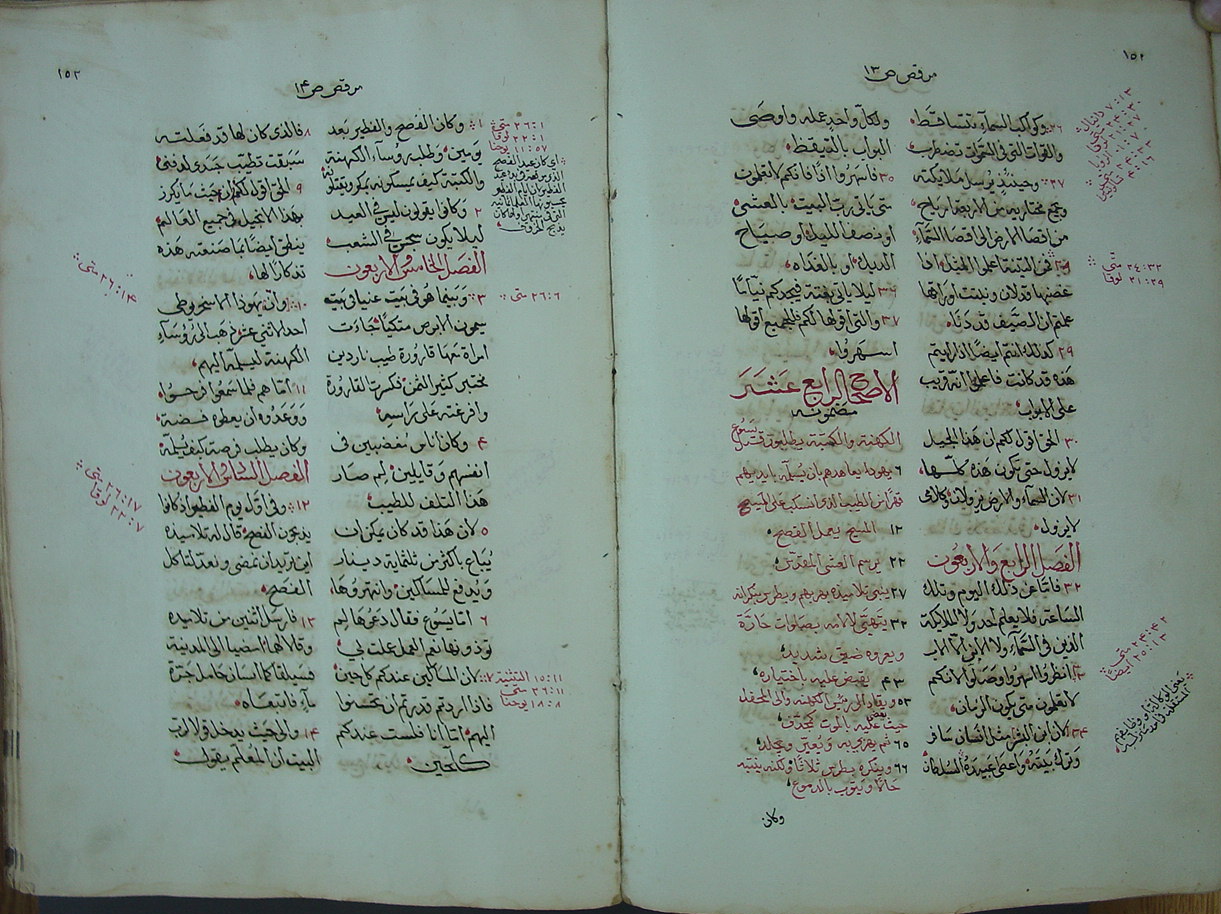 ١٥٢
مرقص ص ١٣
٢٦ وكواكب السمآء تتساقط
والقوات التي في السموات تضطرب
٢٧ وحينئذ يرسل ملايكته
ويجمع مختاريه من الاربعة ارياح
من اقصا الارض الى اقصا السمآء
فمن التينة اعلموا المثل اذا
غصنها قد لان ونبتت اوراقها
علمتم ان الصيف قد دنا
٢٩ كذلك انتم ايضًا اذا رايتم
هذه قد كانت فاعلموا انه قريب
على الابواب
٣٠ الحق اقول لكم ان هذا الجيل
لا يزول حتى تكون هذه كلها
٣١ لان السمآء والارض يزولان وكلامي
لا يزول
الفصل الرابع والاربعون
٣٢ فامّا عن ذلك اليوم وتلك
الساعة فلا يعلم احد ولا الملايكة
الذين في السمآء ولا الابن الا الاب
انظروا اسهروا وصلّوا لانكم
لا تعلمون متى يكون الزمان
٣٤ لان ابن البشر مثل انسان سافر
وترك بيته واعطى عبيده السلطان
٧:١٣ دانيال
٢٤:٣٢ متى
٢١:٢٩ لوقا
٢٤:٤٢ متى
٢٥:١٣ ايضًا
ولكل واحد عمله واوصى
البواب بالتيقظ
٣٥ فاسهروا اذًا فانكم لا تعلمون
متى ياتي رب البيت بالعشي
او نصف الليل او صياح
الديك او بالغداه
٣٦ ليلا ياتي بغتة فيجدكم نيامًا
٣٧ والتي اقولها لكم فللجميع اقولها
اسهروا
الاصحاح الرابع عشر
مضمونه
الكهنة والكتبة يطلبون قتل يسوع
٦ يهودا يعاهدهم بان يسلمه بايديهم
الطيب الذي انسكب على المسيح
١٢ المسيح يعمل الفصح
٢٢ يرسم العشا المقدس
٢٧ ينبي تلاميذه بهربهم وبطرس بنكرانه
٣٢ يتهيّى لالامه بصلوات حارّة
ويعروه ضيق شديد
٤٣ يقبض عليه باختياره
٥٣ ويقاد الى رئيس الكهنة والى المحفل
حيث يحكم عليه بالموت
٦٥ ثم يضرب ويعيّر ويجلد
٦٦ وينكره بطرس ثلاثًا ولكنه ينتبه
حالًا ويتوب بالدموع
وكان
١٥٣
مرقص ص ١٤
١ وكان الفصح والفطير بعد
يومين وطلب رؤسآء الكهنة
والكتبة كيف يمسكونه بمكر ويقتلونه
٢ وكانوا يقولون ليس في العيد
ليلا يكون سجس في الشعب
الفصل الخامس والاربعون
٣ وبينما هو في بيت عنيا في بيت
سمعون الابرص متكيًا جآءت
امراة معها قارورة طيب ناردين
مختبر كثير الثمن فكسرت القارورة
وافرغته على راسه
٤ وكان اناس مغضبين في
انفسهم وقايلين لم صار
هذا التلف للطيب
٥ لان هذا قد كان يمكن ان
يُباع باكثر من ثلثماية دينار
ويُدفع للمساكين وانتهروها
٦ امّا يسوع فقال دعوها لم
توذونها نعم العمل عملت بي
٧ لان المساكين عندكم كل حين
فاذا اردتم قدرتم ان تحسنوا
اليهم امّا انا فلست عندكم
كل حين
٢٦:١ متى
٢٢:١ لوقا
٢٦:٦ متى
١٥:١١ التثنية
٢٦:١١ متى
يوحنا
٨ فالذي كان لها قد فعلته
سبقت تطيب جسدي لدفني
٩ الحق اقول لكم ان بحيث ما يكرز
بهذا الانجيل في جميع العالم
ينطق ايضًا بما صنعته هذه
تذكارًا لها
١٠ وان يهوذا الاسخريوطي
احد الاثني عشر ذهب الى رؤسآء
الكهنة ليسلمه اليهم
١١ امّا هم فلما سمعوا فرحوا
ووعدوه ان يعطوه فضة
وكان يطلب فرصة كيف يسلمه
الفصل السادس والاربعون
١٢ وفي اول يوم الفطير اذ كانوا
يذبحون الفصح قال له تلاميذه
اين تريد ان نمضي ونعد لتاكل
الفصح
١٣ فارسل اثنين من تلاميذه
وقال لهما امضيا الى المدينة
فسيلقاكما انسان حامل جرّة
مآء فاتبعاه
١٤ والى حيث يدخل قولا لرب
البيت ان المعلم يقول
٢٦:١٤ متى
٢٦:١٧ متى
٢٢:٧ لوقا